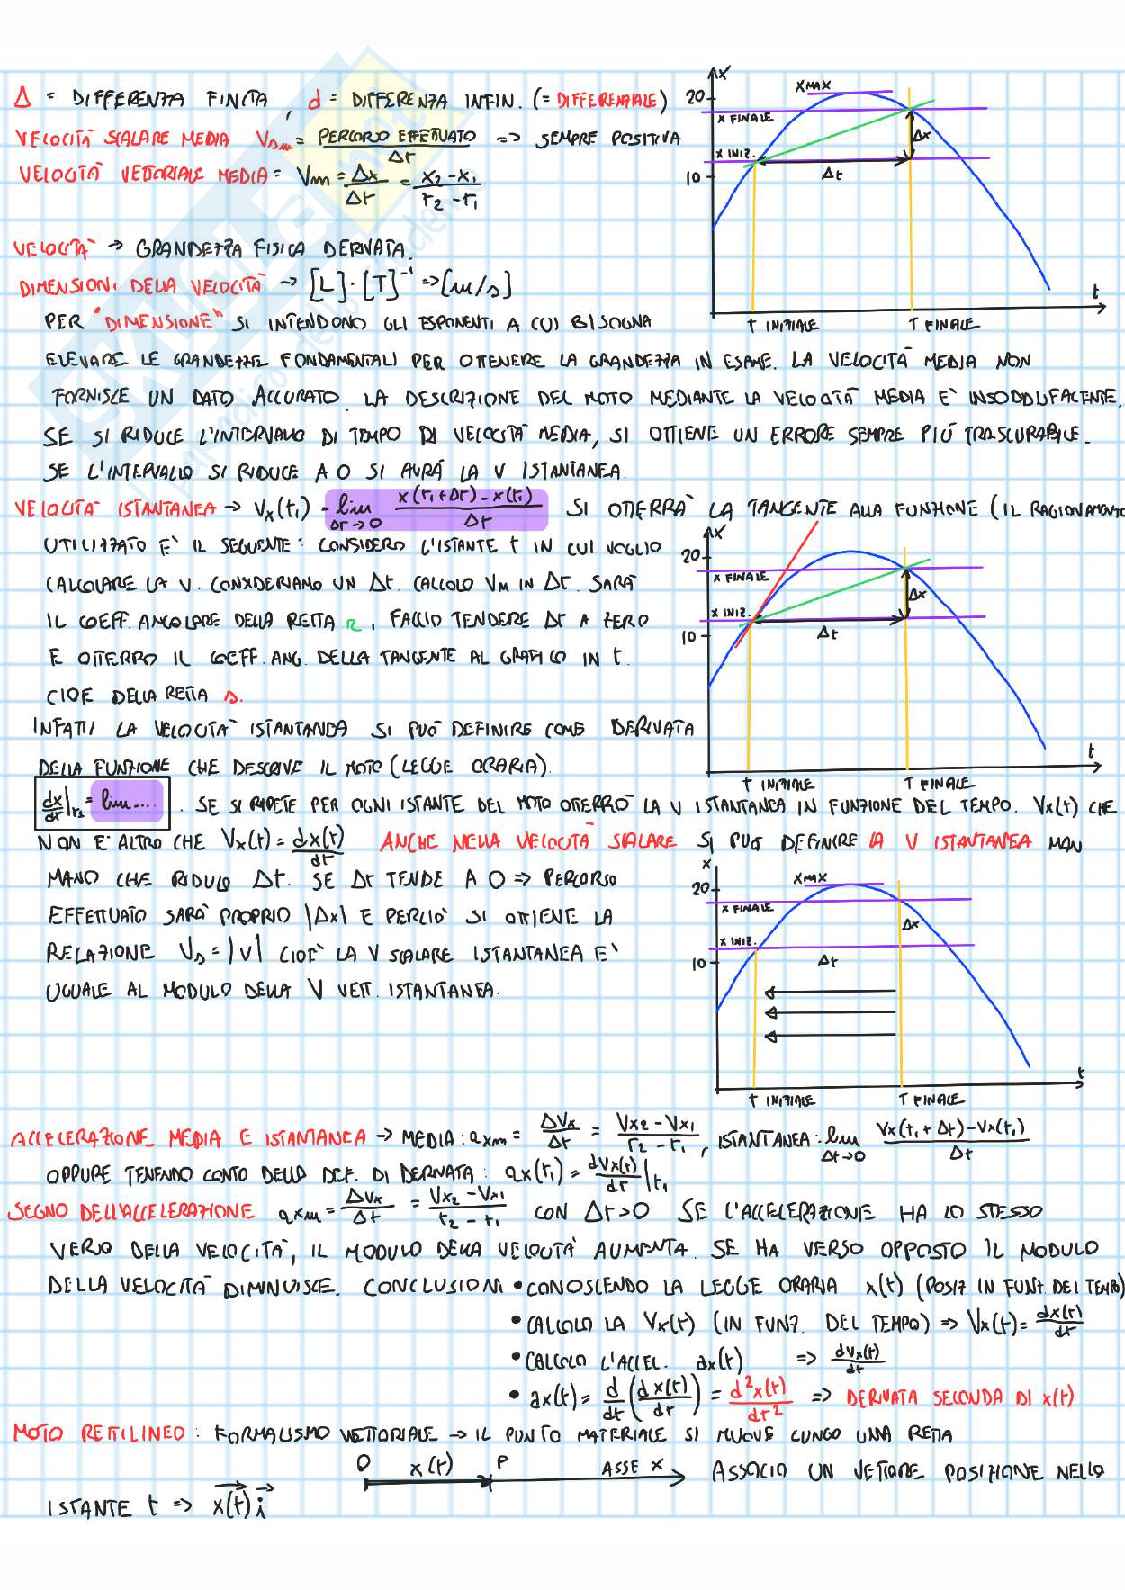 Δ = DIFFERENZA FINITA, d = DIFFERENZA INFIN. (= DIFFERENZIALE)
VELOCITÀ SCALARE MEDIA Vsm = PERCORSO EFFETTUATO / Δt => SEMPRE POSITIVA
VELOCITÀ VETTORIALE MEDIA = Vm = Δx / Δt = x2 - x1 / t2 - t1
VELOCITÀ → GRANDEZZA FISICA DERIVATA.
DIMENSIONI DELLA VELOCITÀ → [L]·[T]⁻¹ => [m/s]
PER "DIMENSIONE" SI INTENDONO GLI ESPONENTI A CUI BISOGNA
ELEVARE LE GRANDEZZE FONDAMENTALI PER OTTENERE LA GRANDEZZA IN ESAME. LA VELOCITÀ MEDIA NON
FORNISCE UN DATO ACCURATO. LA DESCRIZIONE DEL MOTO MEDIANTE LA VELOCITÀ MEDIA È INSODDISFACENTE.
SE SI RIDUCE L'INTERVALLO DI TEMPO DI VELOCITÀ MEDIA, SI OTTIENE UN ERRORE SEMPRE PIÙ TRASCURABILE.
SE L'INTERVALLO SI RIDUCE A 0 SI AVRÀ LA V ISTANTANEA.
x
20
10
X MAX
X FINALE
X INIZ.
Δx
Δt
t
T INIZIALE
T FINALE
VELOCITÀ ISTANTANEA → Vx(t1) = lim Δt→0 x(t1+Δt) - x(t1) / Δt SI OTTERRÀ LA TANGENTE ALLA FUNZIONE (IL RAGIONAMENTO
UTILIZZATO È IL SEGUENTE: CONSIDERO L'ISTANTE t IN CUI VOGLIO
CALCOLARE LA V. CONSIDERIAMO UN Δt. CALCOLO VM IN Δt. SARÀ
IL COEFF. ANGOLARE DELLA RETTA r, FACCIO TENDERE Δt A ZERO
E OTTERRO IL COEFF. ANG. DELLA TANGENTE AL GRAFICO IN t.
CIOE DELLA RETTA s.
INFATTI LA VELOCITÀ ISTANTANEA SI PUÒ DEFINIRE COME DERIVATA
DELLA FUNZIONE CHE DESCRIVE IL MOTO (LEGGE ORARIA).
x
20
10
X FINALE
X INIZ.
Δx
Δt
t
t INIZIALE
T FINALE
dx/dt|t1 = lim.... . SE SI RIPETE PER OGNI ISTANTE DEL MOTO OTTERRÒ LA V ISTANTANEA IN FUNZIONE DEL TEMPO. Vx(t) CHE
NON È ALTRO CHE Vx(t) = dx(t)/dt ANCHE NELLA VELOCITÀ SCALARE SI PUÒ DEFINIRE LA V ISTANTANEA MAN
MANO CHE RIDUCO Δt. SE Δt TENDE A 0 => PERCORSO
EFFETTUATO SARÀ PROPRIO |Δx| E PERCIÒ SI OTTIENE LA
RELAZIONE Vs = |V| CIOÈ LA V SCALARE ISTANTANEA È
UGUALE AL MODULO DELLA V VETT. ISTANTANEA.
x
20
10
X MAX
X FINALE
X INIZ.
Δx
Δt
t
t INIZIALE
T FINALE
ACCELERAZIONE MEDIA E ISTANTANEA → MEDIA: axm = ΔVx / Δt = Vx2 - Vx1 / t2 - t1, ISTANTANEA: lim Δt→0 Vx(t1+Δt) - Vx(t1) / Δt
OPPURE TENENDO CONTO DELLA DEF. DI DERIVATA: ax(t1) = dVx(t)/dt |t1
SEGNO DELL'ACCELERAZIONE axm = ΔVx / Δt = Vx2 - Vx1 / t2 - t1 CON Δt>0 SE L'ACCELERAZIONE HA LO STESSO
VERSO DELLA VELOCITÀ, IL MODULO DELLA VELOCITÀ AUMENTA. SE HA VERSO OPPOSTO IL MODULO
DELLA VELOCITÀ DIMINUISCE. CONCLUSIONI • CONOSCENDO LA LEGGE ORARIA x(t) (POSIZ IN FUNZ. DEL TEMPO)
• CALCOLO LA Vx(t) (IN FUNZ. DEL TEMPO) => Vx(t) = dx(t)/dt
• CALCOLO L'ACCEL. ax(t) => dVx(t)/dt
• ax(t) = d/dt (dx(t)/dt) = d²x(t)/dt² => DERIVATA SECONDA DI x(t)
MOTO RETTILINEO: FORMALISMO VETTORIALE → IL PUNTO MATERIALE SI MUOVE LUNGO UNA RETTA
O x(t) P ASSE X ASSOCIO UN VETTORE POSIZIONE NELLO
ISTANTE t => x(t) i